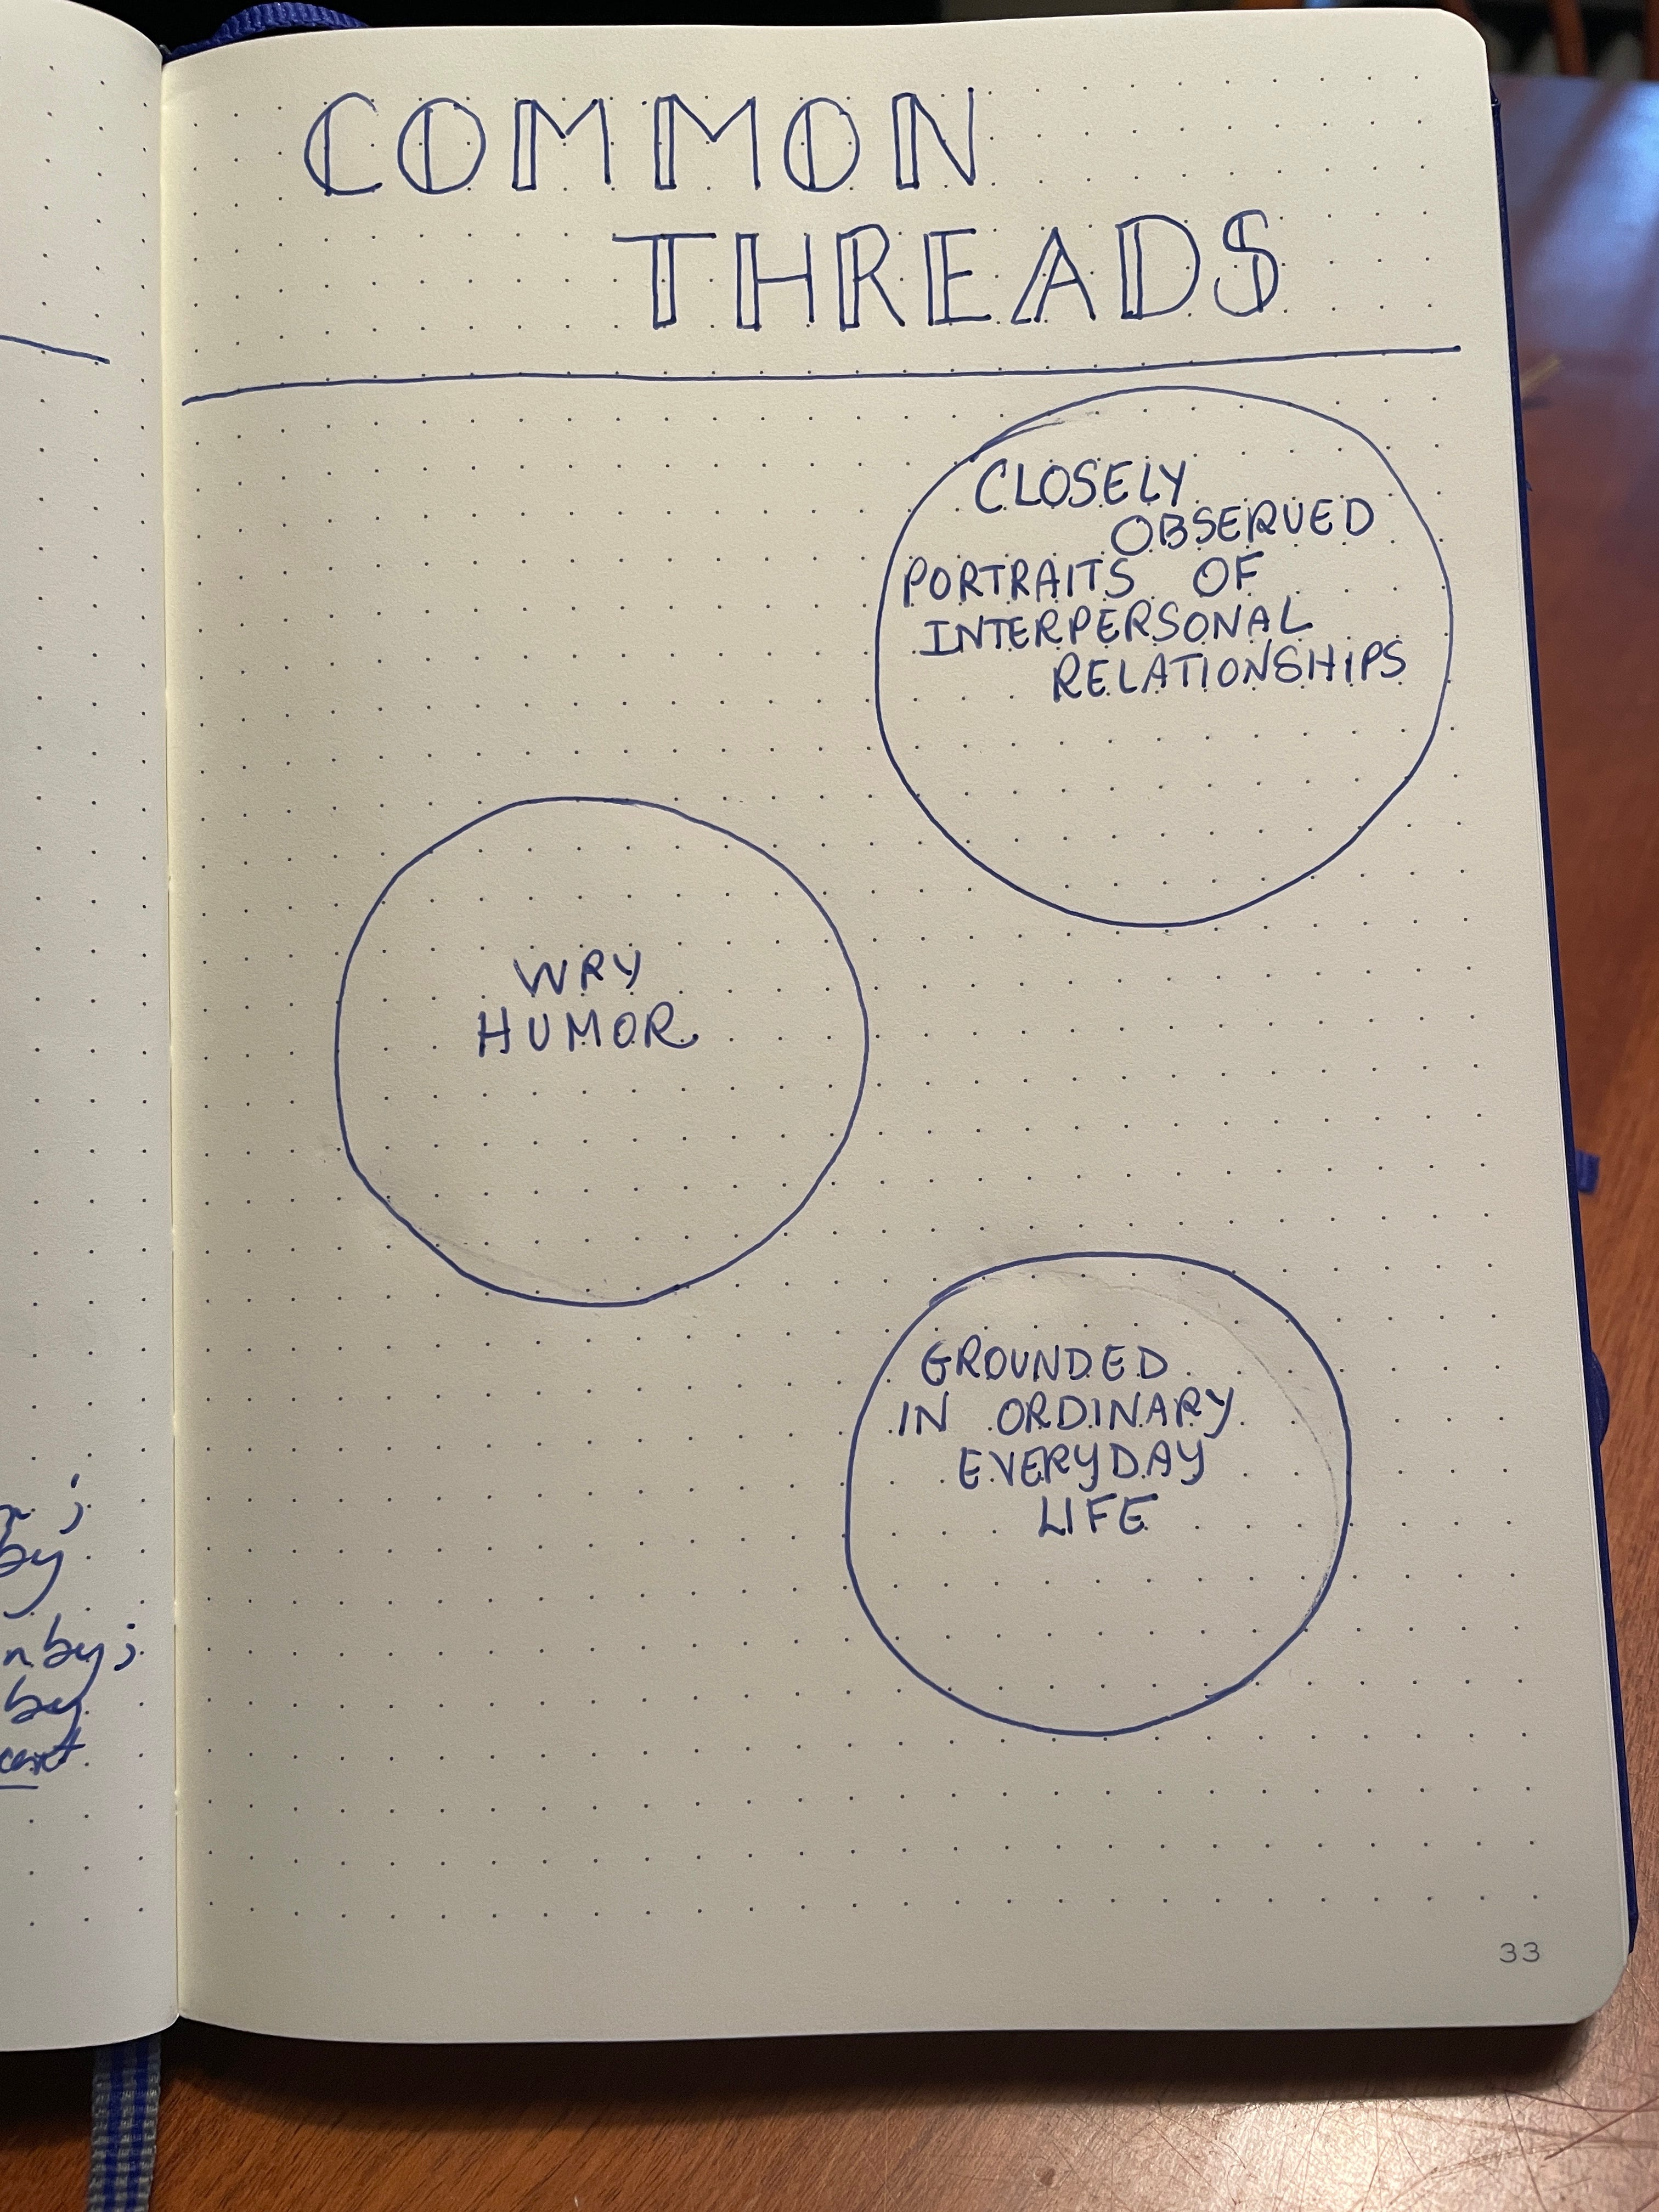 COMMON
THREADS
CLOSELY
OBSERVED
PORTRAITS OF
INTERPERSONAL
RELATIONSHIPS
WRY
HUMOR
GROUNDED
IN ORDINARY
EVERYDAY
LIFE
;
by
by
33